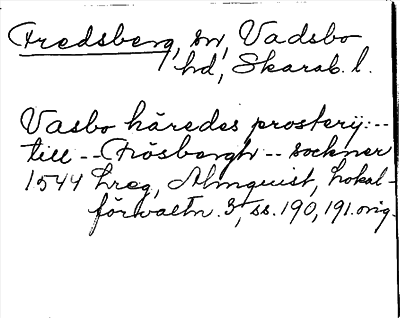 Fredsberg, sn, Vadsbo
hd, Skarab. l.
Vasbo häredes prosterij: --
till -- Frösbergh -- sockner
1544 hreg, Almquist, Lokal-
förvaltn. 3, ss. 190, 191. orig.